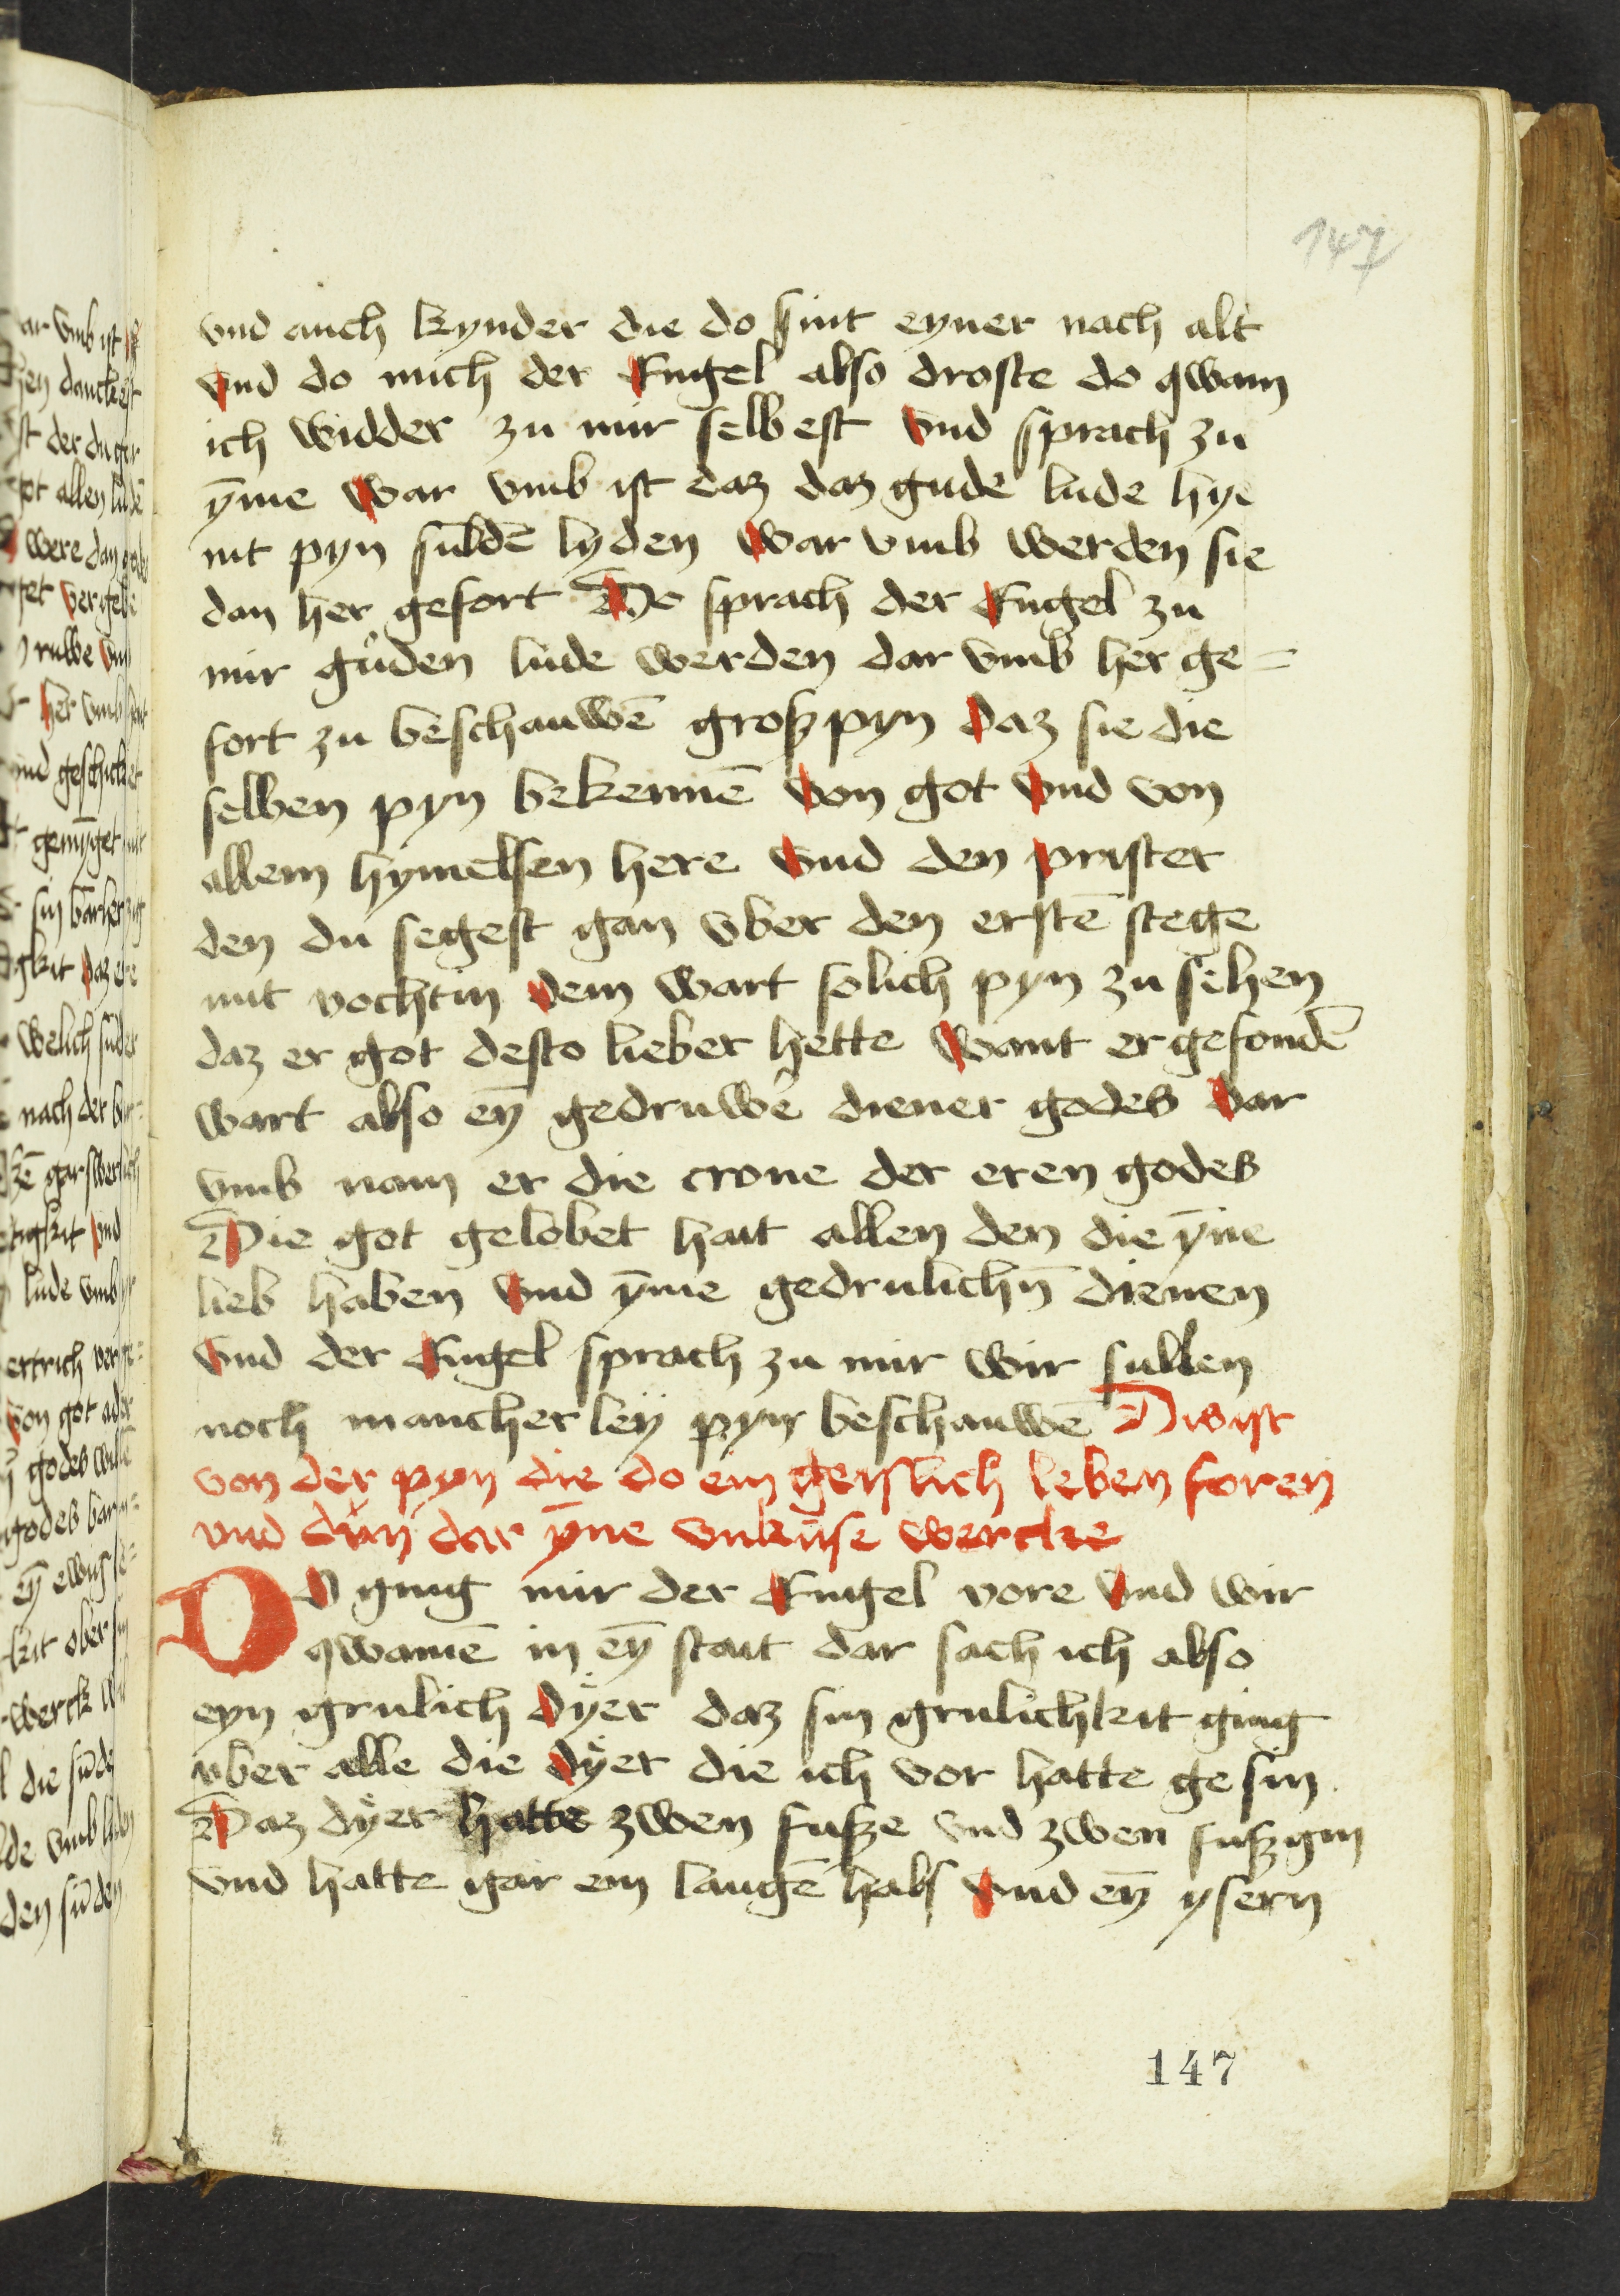 147
vnd auch kynder die do sint eyner nacht alt
Vnd do mich der Engel also droste do qwam
ich widder zu mir selbest Vnd sprach zu
ȳme War vmb ist daz daz gude lude hye
nit pyn sulde̅ lyden War vmb werden sie
dan her gefort Do sprach der Engel zu
mir guͦden lude werden dar vmb her ge=
fort zu beschauwe̅ groß pyn Daz sie die
selben pyn bekenne̅ Von got Vnd von
allem hymelsen here Vnd den prister
den du segest gan vber den erste̅ stege
mit vochtin Dem wart solich pyn zu sehen
daz er got desto lieber hette Want er gefonde̅
wart also eȳ gedruwe̅ diener godes Dar
vmb nam er die crone der eren godes
Die got gelobet hait allen den die ȳme
lieb haben Vnd ȳme gedrulichn̅ dienen
Vnd der Engel sprach zu mir wir sullen
noch mancherley pyn beschauwe̅ Dis ist
von der pyn die do ein geistlich leben foren
vnd duͦn dar ȳne vnkuse wercke
DO ging mir der Engel vore Vnd wir
qwame̅ in eȳ stait dar sach ich also
eyn grulich Dyer daz sin grulichkit ging
vber alle die Dyer die ich vor hatte gesin
Daz dyer hatte zwen fusze vnd zwen fuszgin
vnd hatte gar ein lange̅ hals Vnd eȳ ysern
147